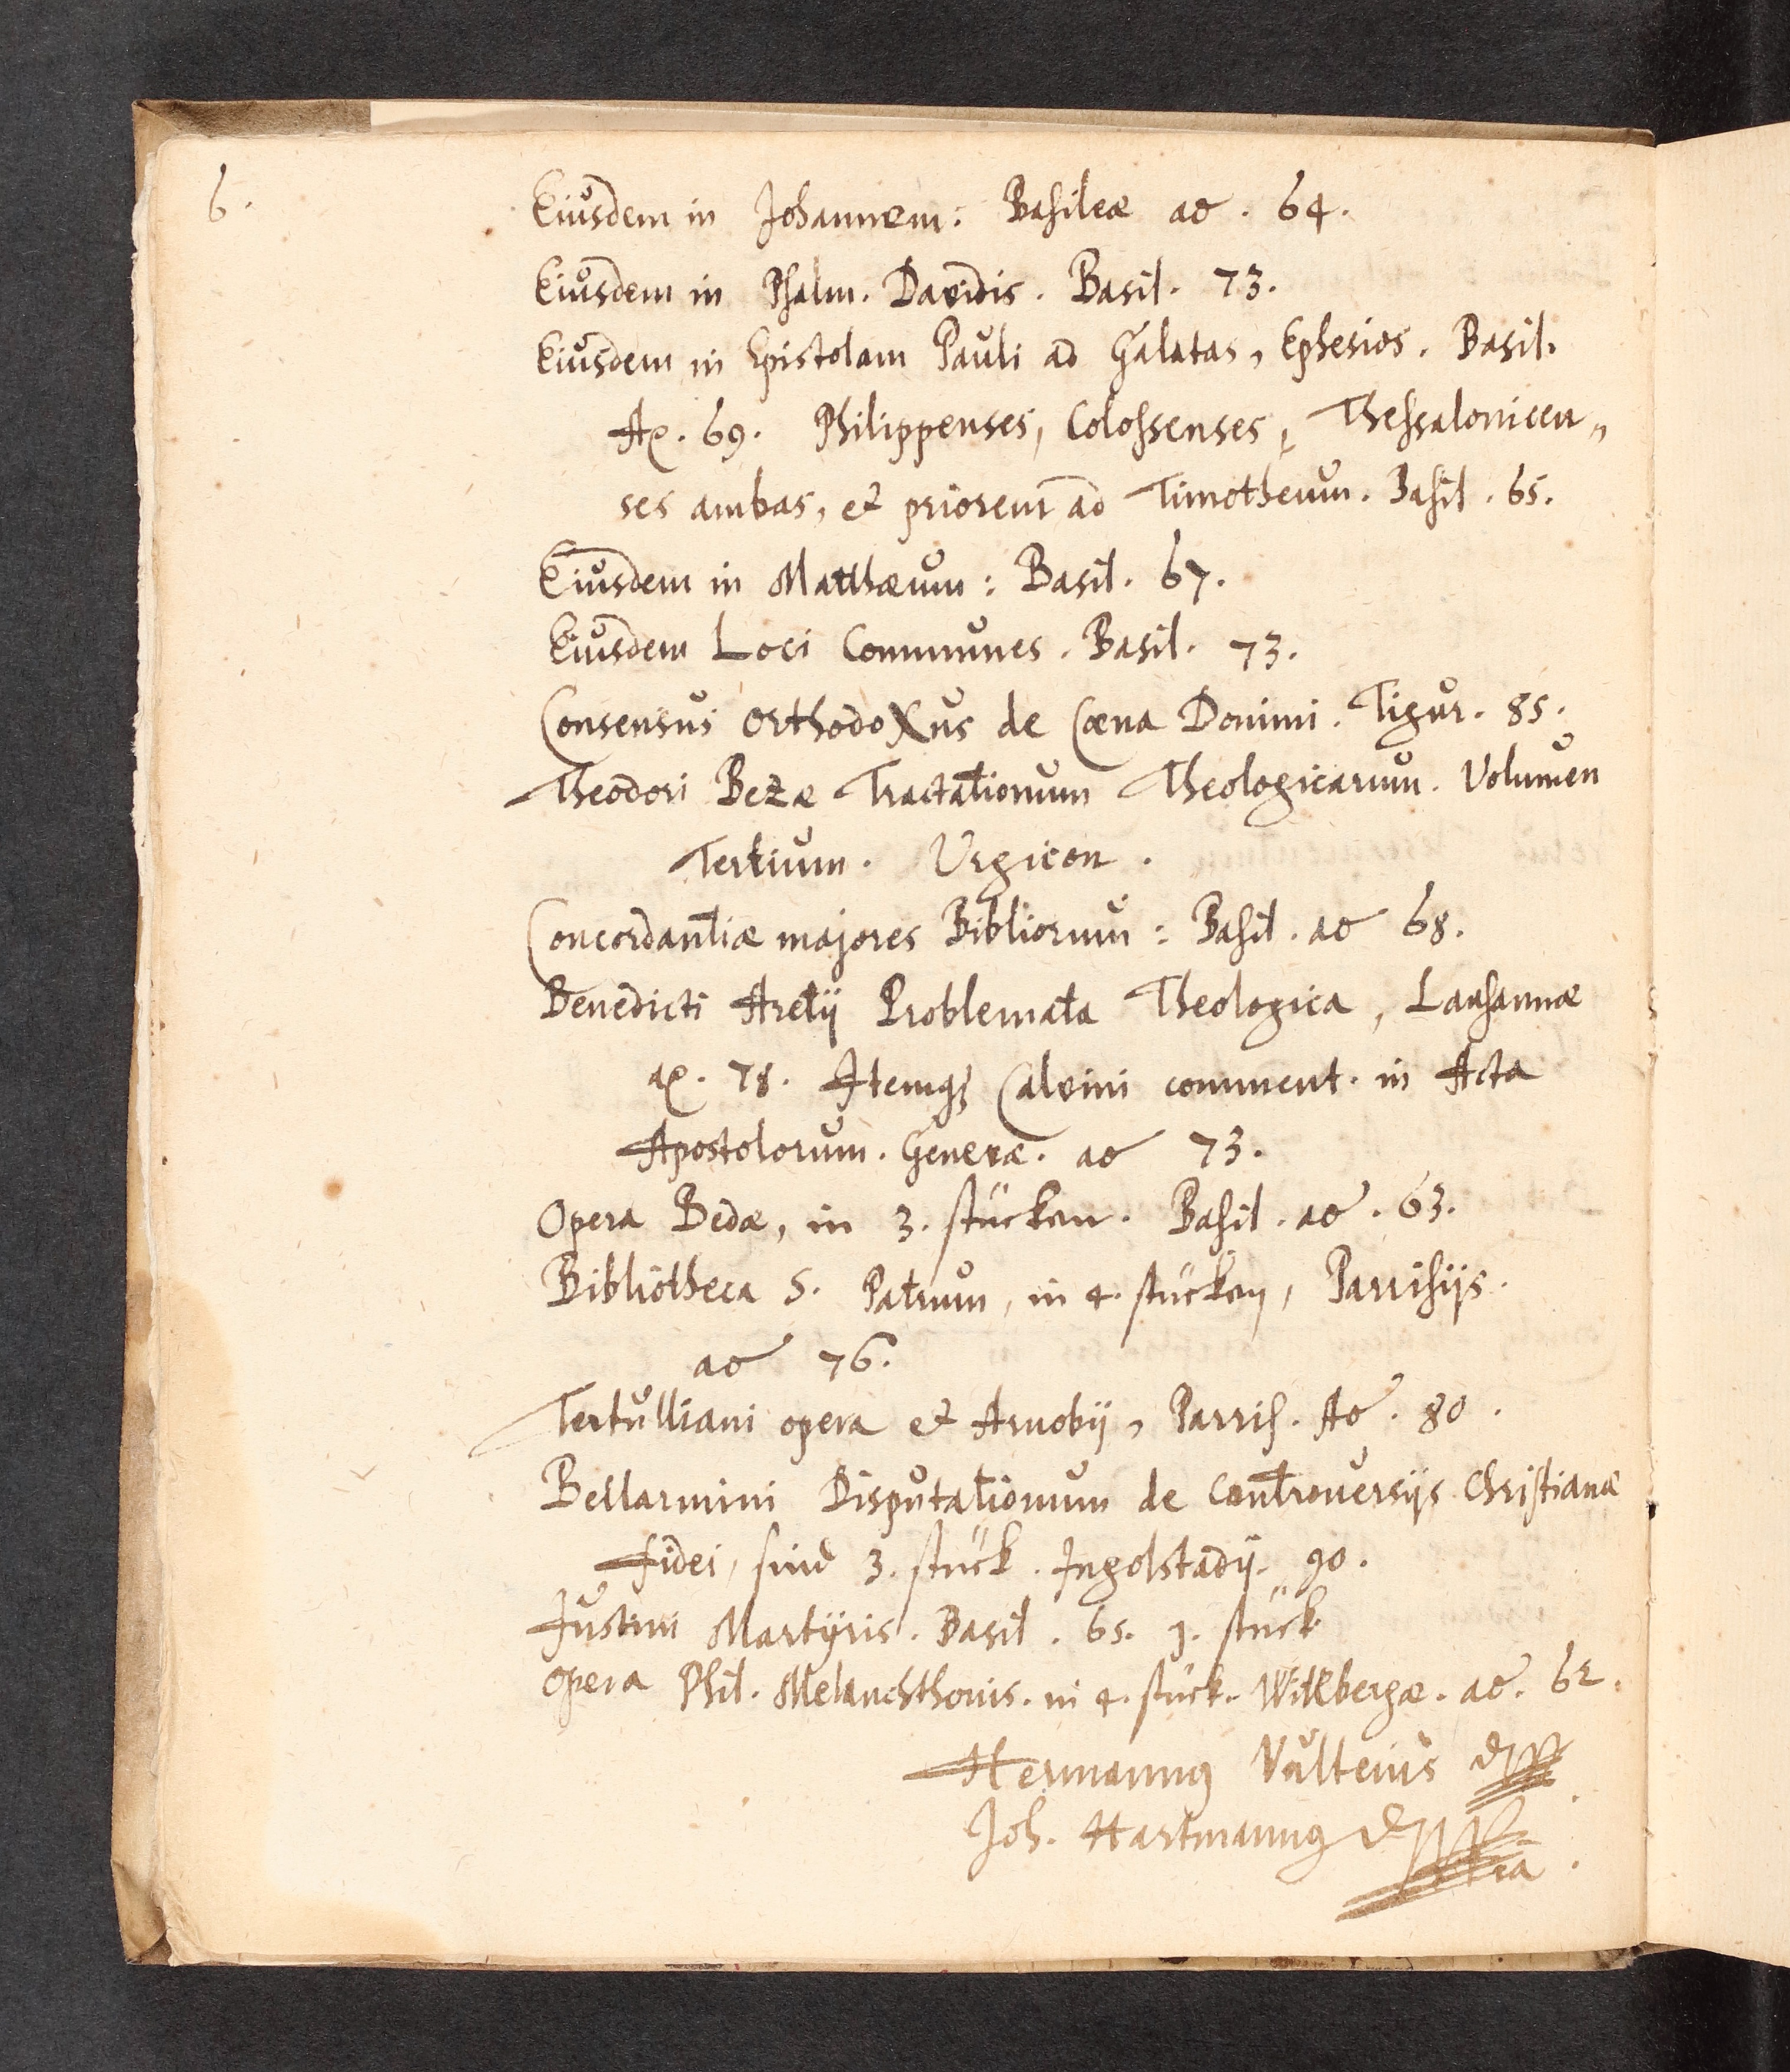 6.
Eiusdem in Johannem: Basileæ ao. 64.
Eiusdem in Psalm. Davidis. Basil. 73.
Eiusdem in Epistolam Pauli ad Galatas, Ephesios. Basil.
Ao. 69. Philippenses, Colossenses, Thessalonicen„
ses ambas, et priorem ad Timotheum. Basil. 65.
Eiusdem in Matthæum: Basil. 67.
Eiusdem Loci Communes. Basil. 73.
Consensus OrthodoXus de Cœna Domini. Tigur. 85.
Theodori Bezæ Tractationum Theologicarum. Volumen
Tertium. Urgicon.
Concordantiæ majores Bibliorum: Basil. ao 68.
Benedicti Aretij Problemata Theologica, Lausannæ
ao. 78. Itemq₃ Calvini comment. in Acta
Apostolorum. Genevæ. ao 73.
Opera Bedæ, in 3. stücken. Basil. ao. 63.
Bibliotheca S. Patrum, in 4. stücken, Parrisijs.
ao 76.
Tertulliani opera et Arnobij, Parris. Ao. 80.
Bellarmini Disputationum de Controuersijs Christianæ
fidei, sind 3. stück. Ingolstadij. 90.
Justini Martÿris. Basil. 65. 1. stück
Opera Phil. Melanchthonis. in 4. stück. Witebergæ. ao. 62.
Hermannꝰ Vulteius D
Joh. Hartmannꝰ D